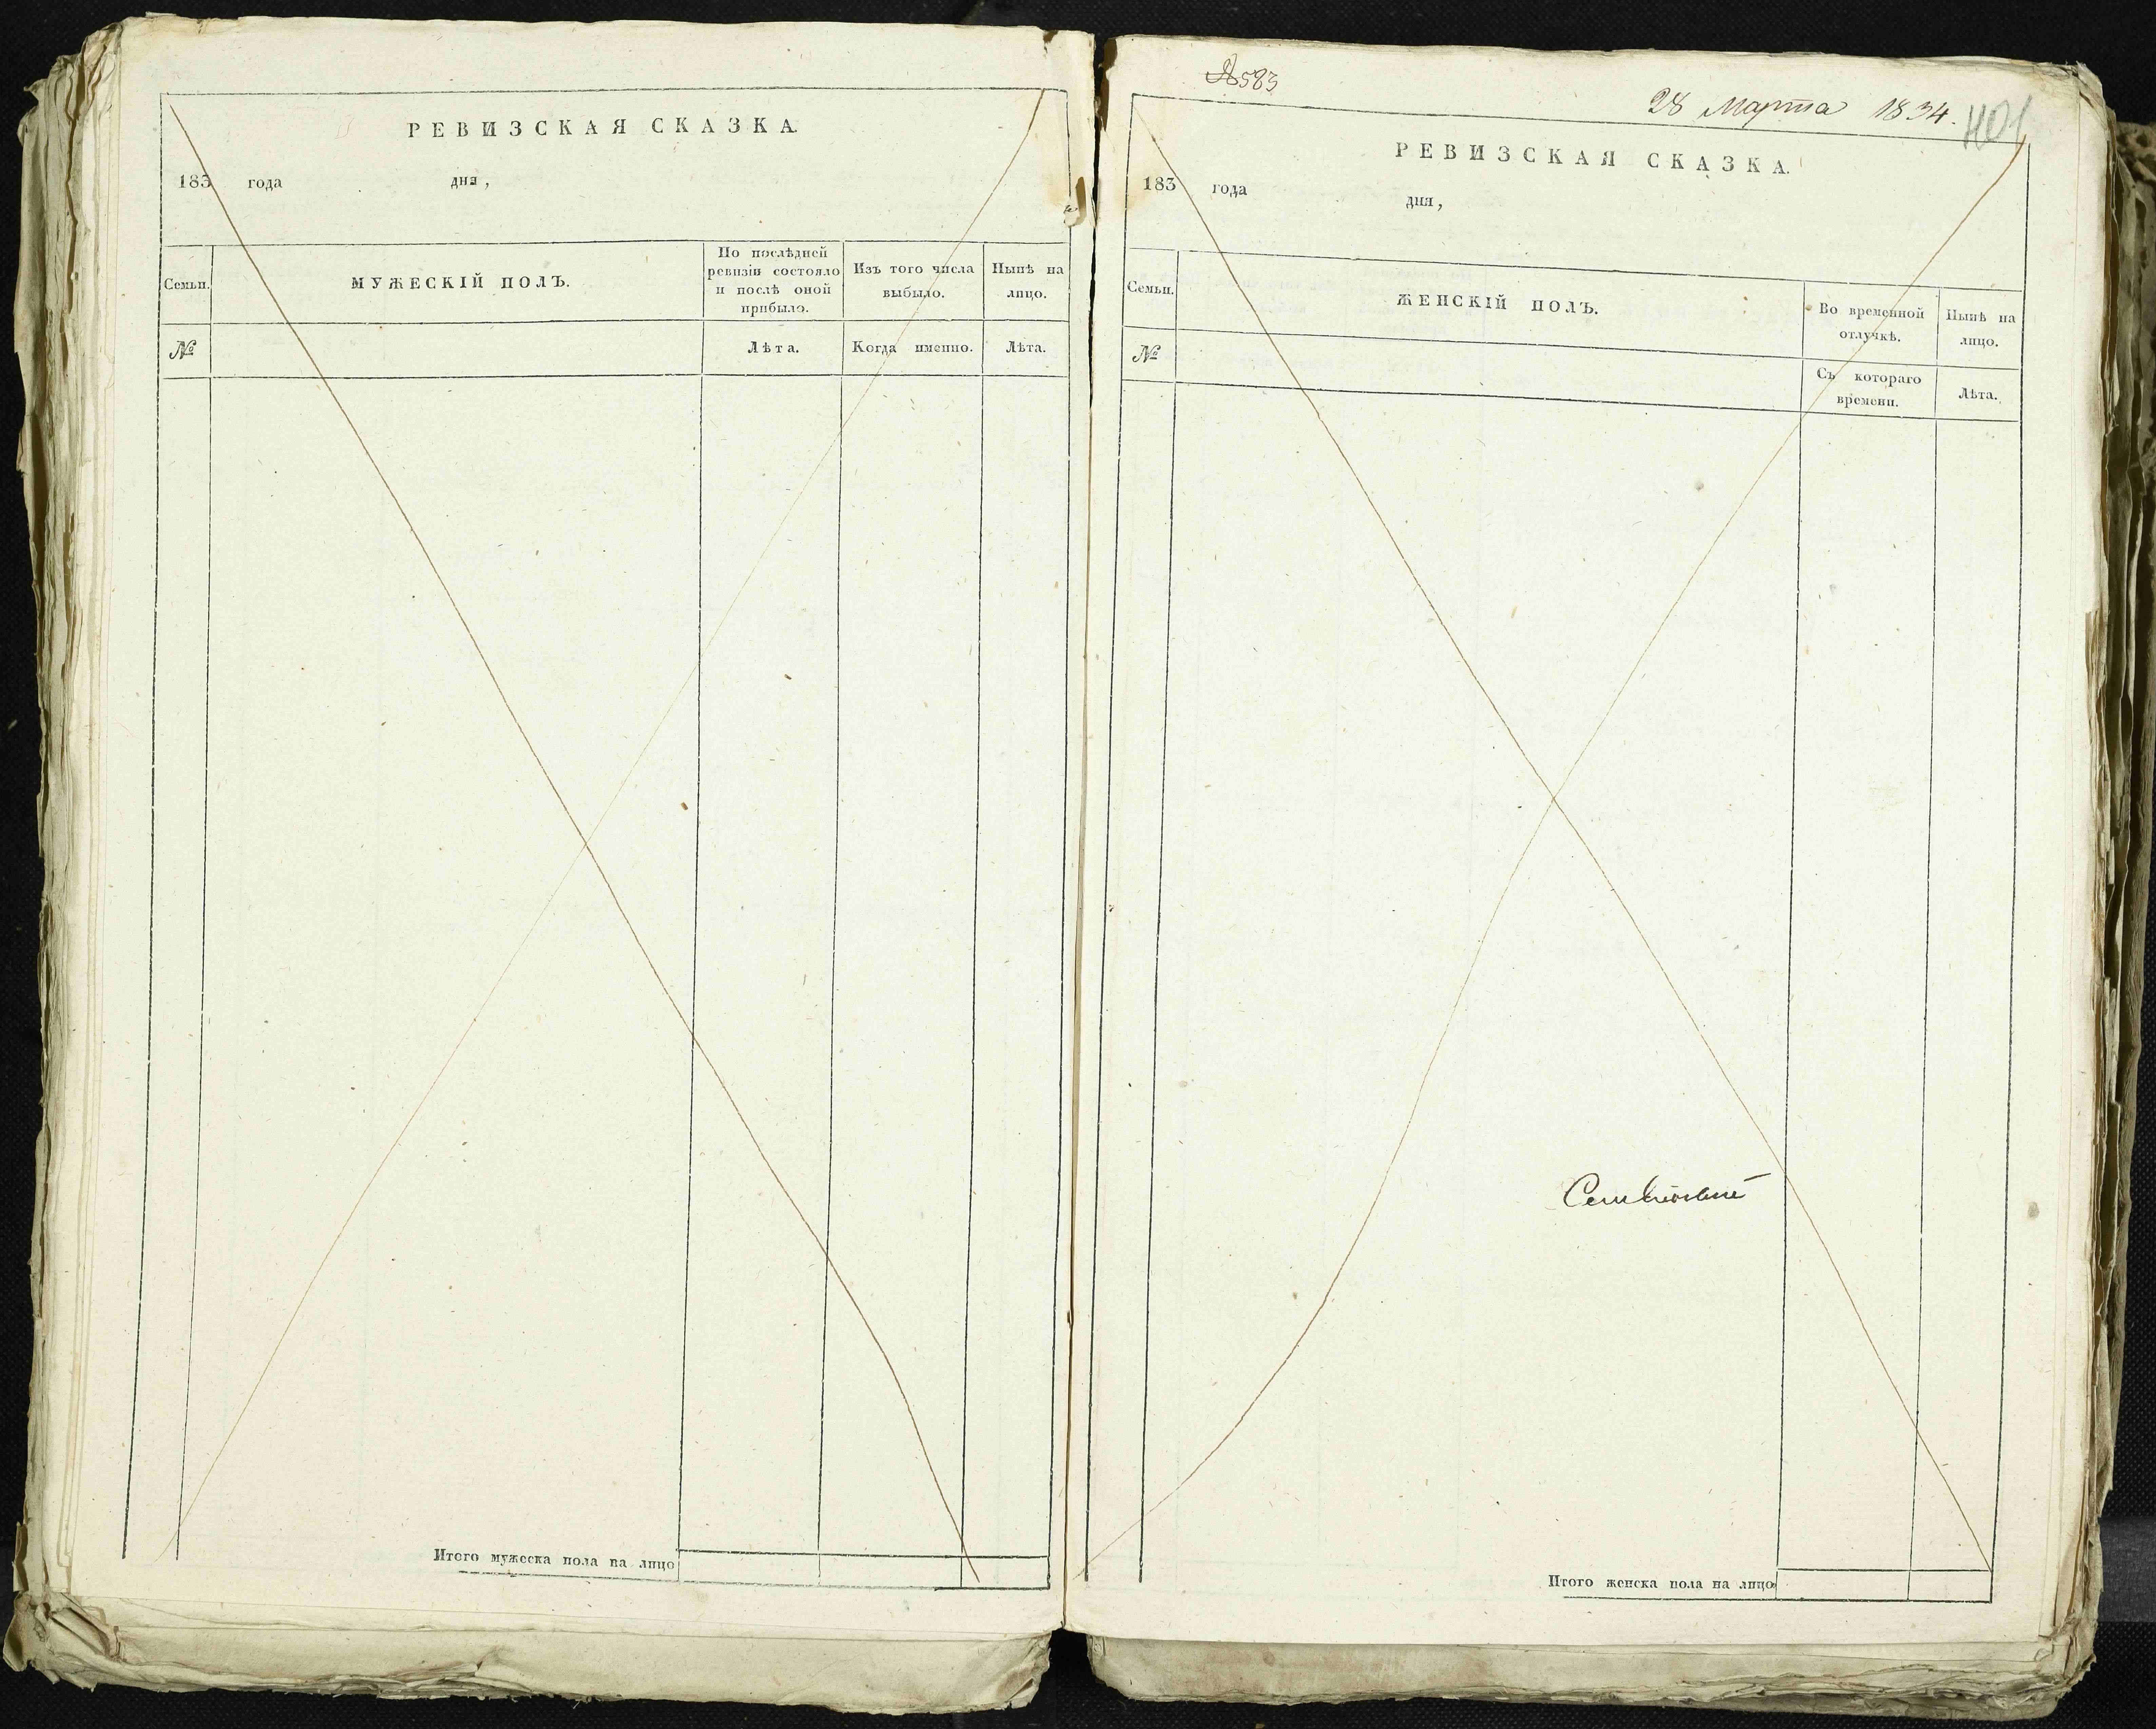 РЕВИЗСКАЯ СКАЗКА.
183 года дня,
Семьи.
МУЖЕСКІЙ ПОЛЪ.
По послѣдней
ревизіи состояло
и послѣ оной
прибыло.
Изъ того числа
выбыло.
Нынѣ на
лицо.
№
Лѣта.
Когда именно.
Лѣта.
Итого мужеска пола на лицо
583
28 Марта 1834.
401
РЕВИЗСКАЯ СКАЗКА.
183 года дня,
Семьи.
ЖЕНСКІЙ ПОЛЪ.
Во временной
отлучкѣ.
Нынѣ на
лицо.
№
Съ котораго
времени.
Лѣта.
Итого женска пола на лицо